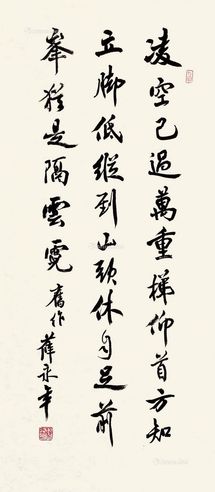 凌空已過萬重梯仰首方知
立脚低縱到山頭休自足前
峯猶是隔雲霓 舊作 薛永年